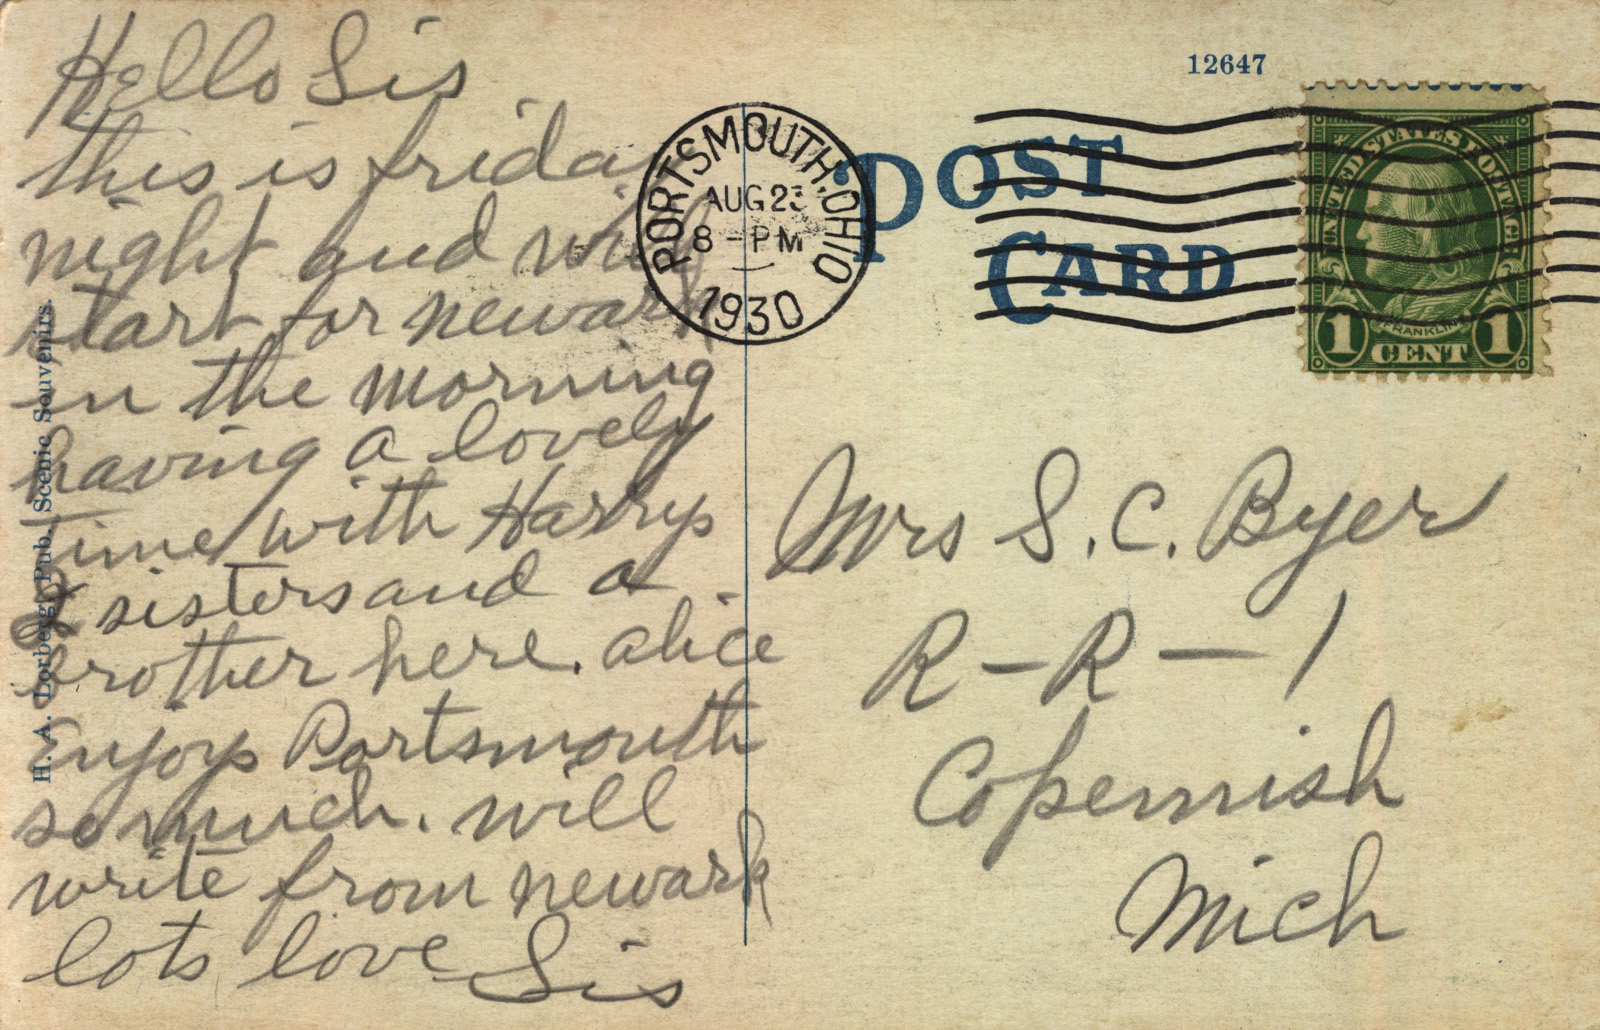 Hello Sis
this is friday
night and will
start for newark
in the morning
having a lovely
time with Harrys
2 sisters and a
brother here. alice
Enjoys Portsmouth
so much. will
write from newark
lots love Sis
H. A. Lorberg, Pub. Scenic Souvenirs.
12647
POST
CARD
PORTSMOUTH, OHIO
AUG 23
8 - PM
1930
UNITED STATES POSTAGE
FRANKLIN
1 CENT 1
Mrs S. C. Byer
R - R - 1
Copemish
Mich